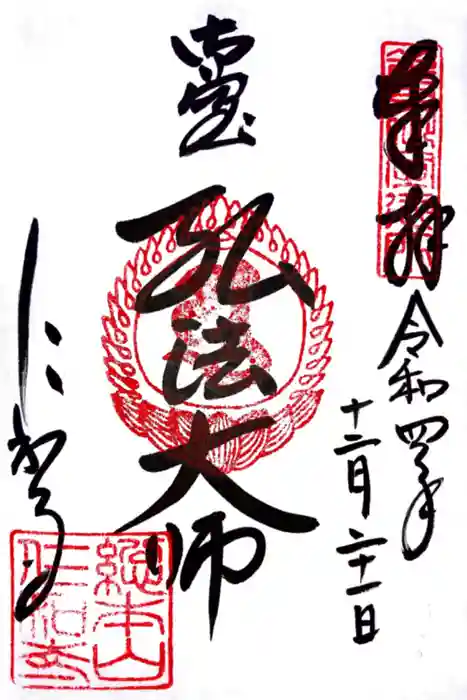 奉拝
令和四年
十二月二十一日
弘法大師
仁和寺
總本山
仁和寺